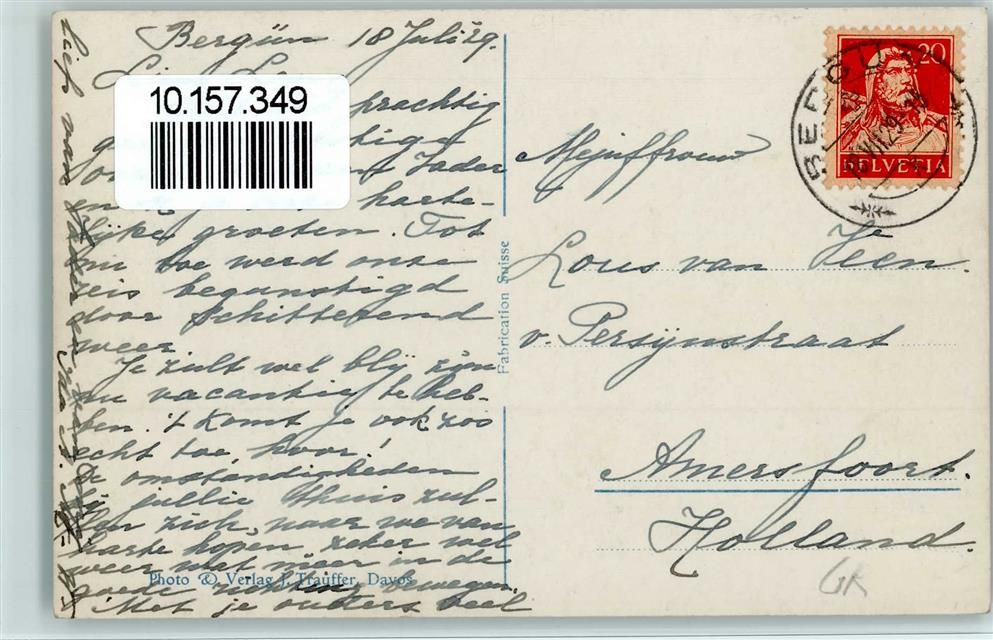 Bergün 18 Juli 29.
10.157.349
prachtig
Vader
harte-
lijke groeten. Tot
nu toe werd onze
reis begunstigd
door schitterend
weer.
Je zult wel blij zijn
nu vacantie te heb-
ben. 't Komt je ook zoo
echt toe, hoor!
De omstandigheden
bij jullie thuis zul-
len zich, naar we van
harte hopen, zeker wel
weer wat meer in de
goede richting bewegen.
Met je ouders veel
Lief van
Photo & Verlag J. Trauffer, Davos
Fabrication Suisse
20
HELVETIA
BERGÜN
Mejuffrouw
Lous van Veen.
v. Persijnstraat
Amersfoort.
Holland.
GK